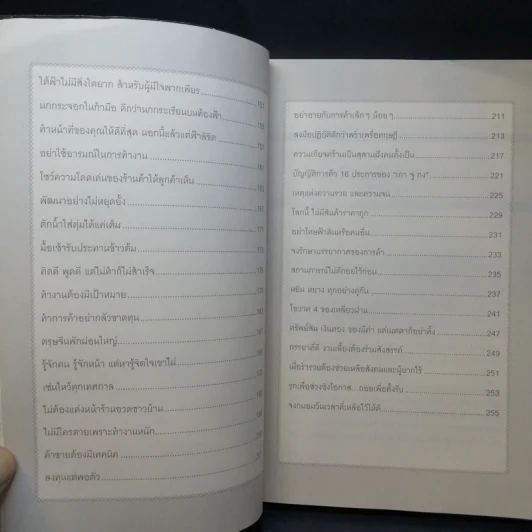 ใต้ฟ้าไม่มีสิ่งใดยาก สำหรับผู้มีใจพากเพียร
นกกระจอกในกำมือ ดีกว่านกกระเรียนบนท้องฟ้า
ทำหน้าที่ของคุณให้ดีที่สุด นอกนั้นแล้วแต่ฟ้าลิขิต
อย่าใช้อารมณ์ในการทำงาน
โชว์ความโดดเด่นของร้านค้าให้ลูกค้าเห็น
พัฒนาอย่างไม่หยุดยั้ง
ตักน้ำใส่ตุ่มได้แค่เต็ม
มื้อเช้ารับประทานข้าวต้ม
คิดดี พูดดี แต่ไม่ทำก็ไม่สำเร็จ
ทำงานต้องมีเป้าหมาย
ทำการค้าอย่ากลัวขาดทุน
ตรุษจีนพักผ่อนใหญ่
รู้จักคน รู้จักหน้า แต่หารู้จิตใจเขาไม่
เซ่นไหว้ทุกเทศกาล
ไม่ต้องแต่งหน้าร้านอวดชาวบ้าน
ไม่มีใครตายเพราะทำงานหนัก
ค้าขายต้องมีเทคนิค
ลงทุนแต่พอตัว
อย่าอายกับการค้าเล็ก ๆ น้อย ๆ 211
ลงมือปฏิบัติดีกว่าพร่ำเพรื่อทฤษฎี 213
ความเกียจคร้านเป็นสุสานฝังคนทั้งเป็น 217
บัญญัติการค้า 16 ประการของ "เถา จู กง" 221
เหตุแห่งความรวย และความจน 225
โลกนี้ ไม่มีสินค้าราคาถูก 229
อย่าโทษฟ้าดินหรือคนอื่น 231
จงรักษาบรรยากาศของการค้า 233
สถานการณ์ไม่ดีถอยไว้ก่อน 235
หยิน หยาง ทุกอย่างคู่กัน 237
โอวาท 4 ของเหลี่ยวฝาน 241
ทรัพย์สิน เงินทอง ของมีค่า แต่เมตตาก็อย่าทิ้ง 247
ภรรยาที่ดี งานเลี้ยงต้องร่วมสังสรรค์ 249
เมื่อร่ำรวยต้องช่วยเหลือสังคมและผู้ยากไร้ 251
รุกเพื่อช่วงชิงโอกาส...ถอยเพื่อตั้งรับ 253
จงถนอมวันเวลาที่เหลือไว้ให้ดี 255